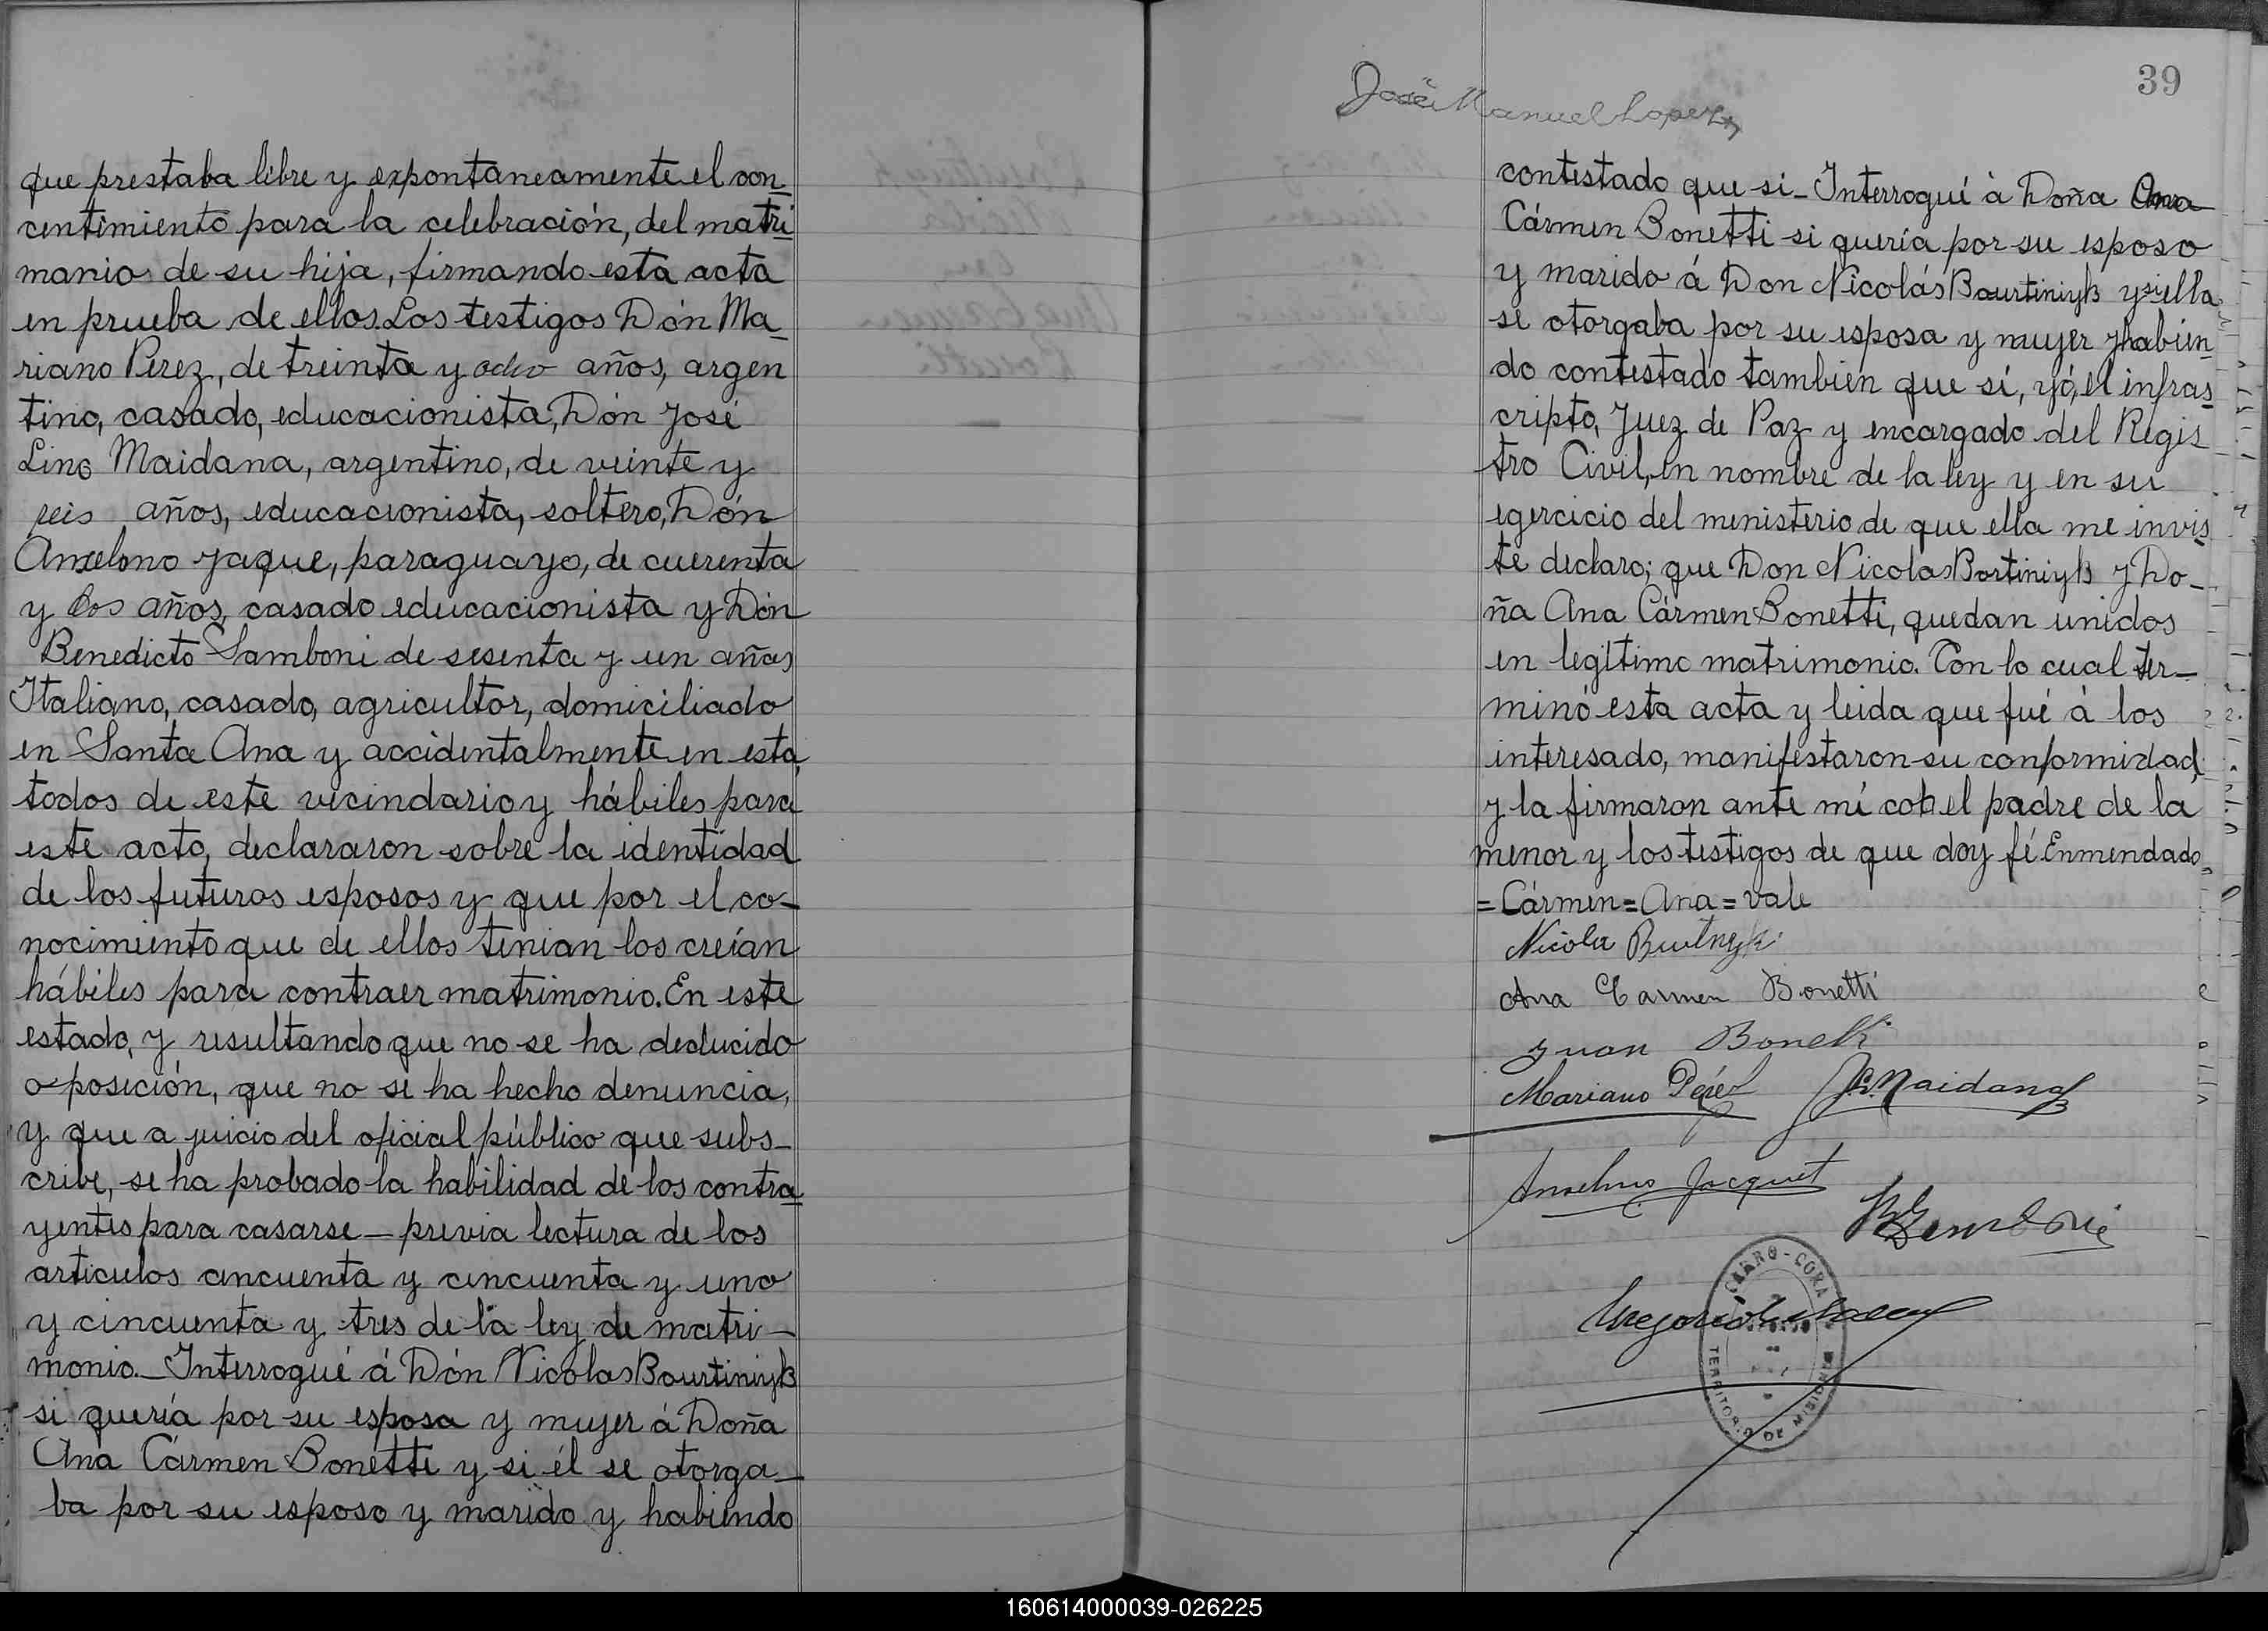 que prestaba libre y expontaneamente el con
centimiento para la celebración, del matri
manio de su hija, firmando esta acta
en prueba de ellos. Los testigos Dón Ma
riano Perez, de treinta y ocho años, argen
tino, casado, educacionista, Dón José
Lino Maidana, argentino, de veinte y
seis años, educacionista, soltero, Dón
Anselmo Jaque, paraguayo, de cuerenta
y dos años, casado educacionista y Dón
Benedicto Samboni de sesenta y un años
Italiano, casado, agricultor, domiciliado
en Santa Ana y accidentalmente en esta,
todos de este vecindario y hábiles para
este acto, declararon sobre la identidad
de los futuros esposos y que por el co-
nocimiento que de ellos tenian los creían
hábiles para contraer matrimonio. En este
estado, y resultando que no se ha deducido
oposición, que no se ha hecho denuncia,
y que a juicio del oficial público que subs-
cribe, se ha probado la habilidad de los contra
yentes para casarse - previa lectura de los
articulos cincuenta y cincuenta y uno
y cincuenta y tres de la ley de matri-
monio. Interrogué á Dón Nicolas Bourtiniyk
si quería por su esposa y mujer á Doña
Ana Cármen Bonetti y si él se otorga-
ba por su esposo y marido y habiendo
39
José Manuel Lopez
contestado que si - Interrogué à Doña Ana
Cármen Bonetti si quería por su esposo
y marido á Don Nicolás Bourtiniyk y si ella
se otorgaba por su esposa y mujer y habien
do contestado también que sí, yó, el infras
cripto, Juez de Paz y encargado del Regis
tro Civil, en nombre de la ley y en su
egercicio del menisterio de que ella me invis
te declaro; que Don Nicolas Bortiniyk y Do-
ña Ana Cármen Bonetti, quedan unidos
en legítimo matrimonio. Con lo cual ter-
minó esta acta y leida que fué à los
interesado, manifestaron su conformidad,
y la firmaron ante mí con el padre de la
menor y los testigos de que doy fé. Enmendado
= Cármen = Ana = vale
Nicola
Ana Carmen Bonetti
Juan Bonetti
Mariano Pérez J. L. Maidana
Anselmo Jacquet
B Zamboni
Gregorio
CERRO-CORA
TERRITORIO DE MISIONES
160614000039-026225